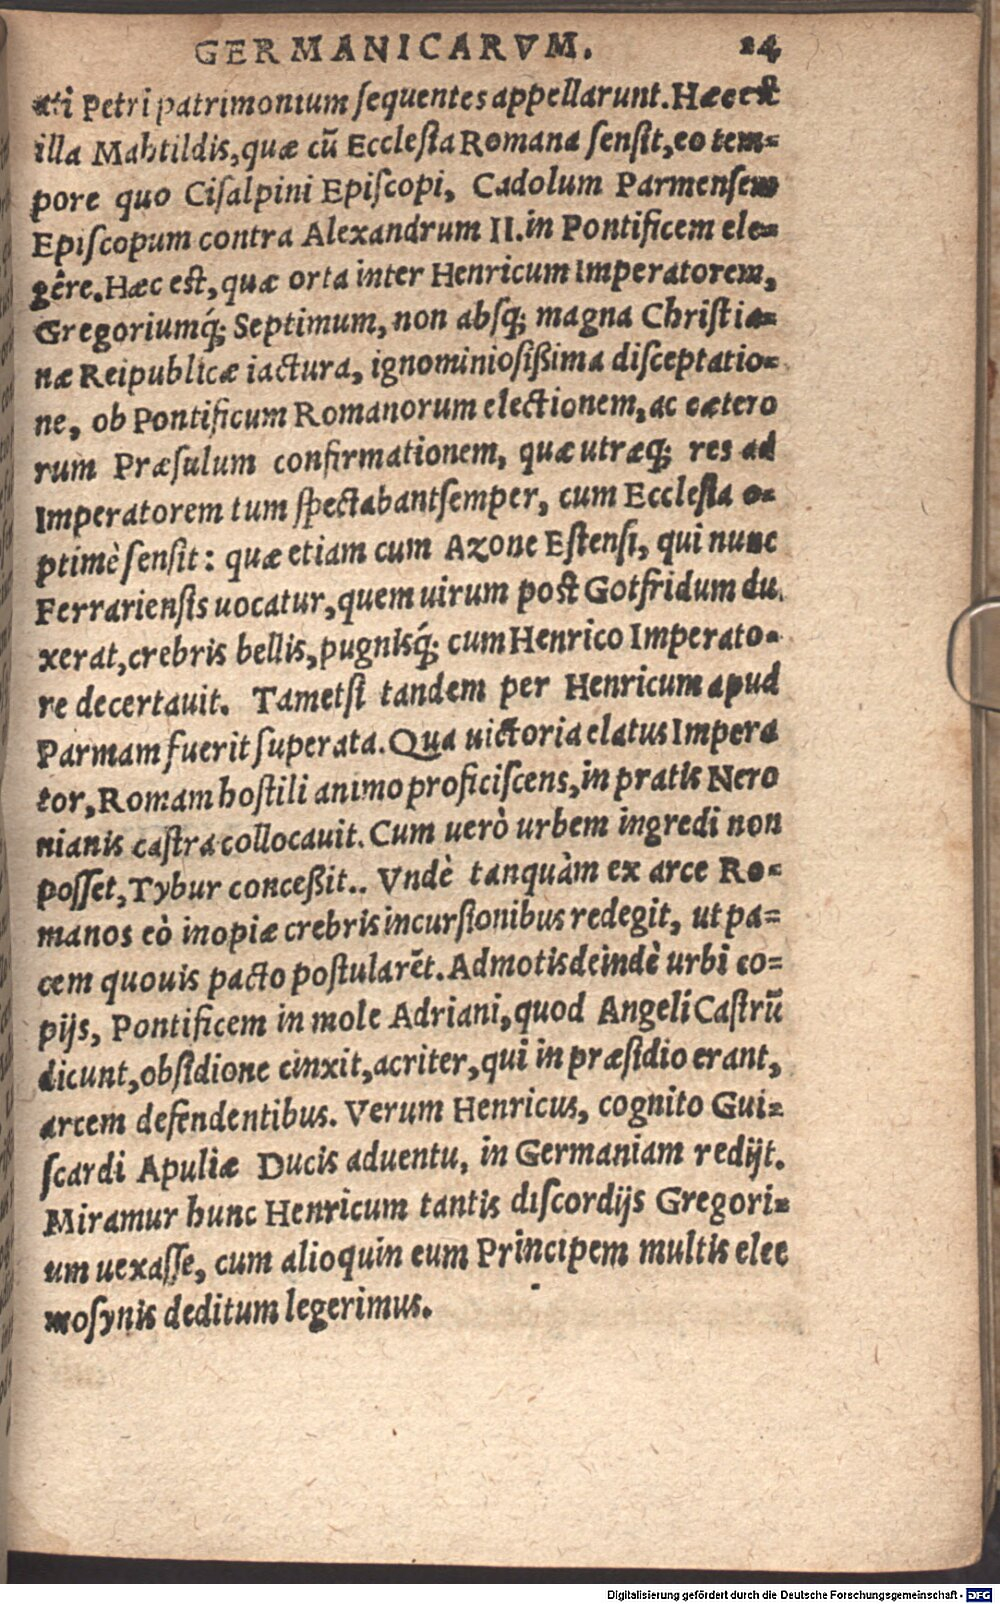 GERMANICARVM. 24
ati Petri patrimonium ſequentes appellarunt. Hæc eſt
illa Mahtildis, quæ cū Eccleſia Romana ſenſit, eo tem-
pore quo Ciſalpini Epiſcopi, Cadolum Parmenſem
Epiſcopum contra Alexandrum II. in Pontificem ele-
gêre. Hæc eſt, quæ orta inter Henricum Imperatorem,
Gregoriumq́; Septimum, non abſq; magna Chriſtia-
næ Reipublicæ iactura, ignominioſißima diſceptatio-
ne, ob Pontificum Romanorum electionem, ac cætero
rum Præſulum confirmationem, quæ utræq; res ad
Imperatorem tum ſpectabant ſemper, cum Eccleſia o-
ptimè ſenſit: quæ etiam cum Azone Eſtenſi, qui nunc
Ferrarienſis uocatur, quem uirum poſt Gotfridum du.
xerat, crebris bellis, pugnisq́; cum Henrico Imperato-
re decertauit. Tametſi tandem per Henricum apud
Parmam fuerit ſuperata. Qua uictoria elatus Impera
tor, Romam hoſtili animo proficiſcens, in pratis Nero
nianis caſtra collocauit. Cum uerò urbem ingredi non
poſſet, Tybur conceßit.. Vndè tanquàm ex arce Ro-
manos eò inopiæ crebris incurſionibus redegit, ut pa-
cem quouis pacto poſtularēt. Admotis deindè urbi co-
pijs, Pontificem in mole Adriani, quod Angeli Caſtrū
dicunt, obſidione cinxit, acriter, qui in præſidio erant,
arcem defendentibus. Verum Henricus, cognito Gui-
ſcardi Apuliæ Ducis aduentu, in Germaniam redijt.
Miramur hunc Henricum tantis diſcordijs Gregori-
um uexaſſe, cum alioquin eum Principem multis elee
moſynis deditum legerimus.
Digitalisierung gefördert durch die Deutsche Forschungsgemeinschaft - DFG